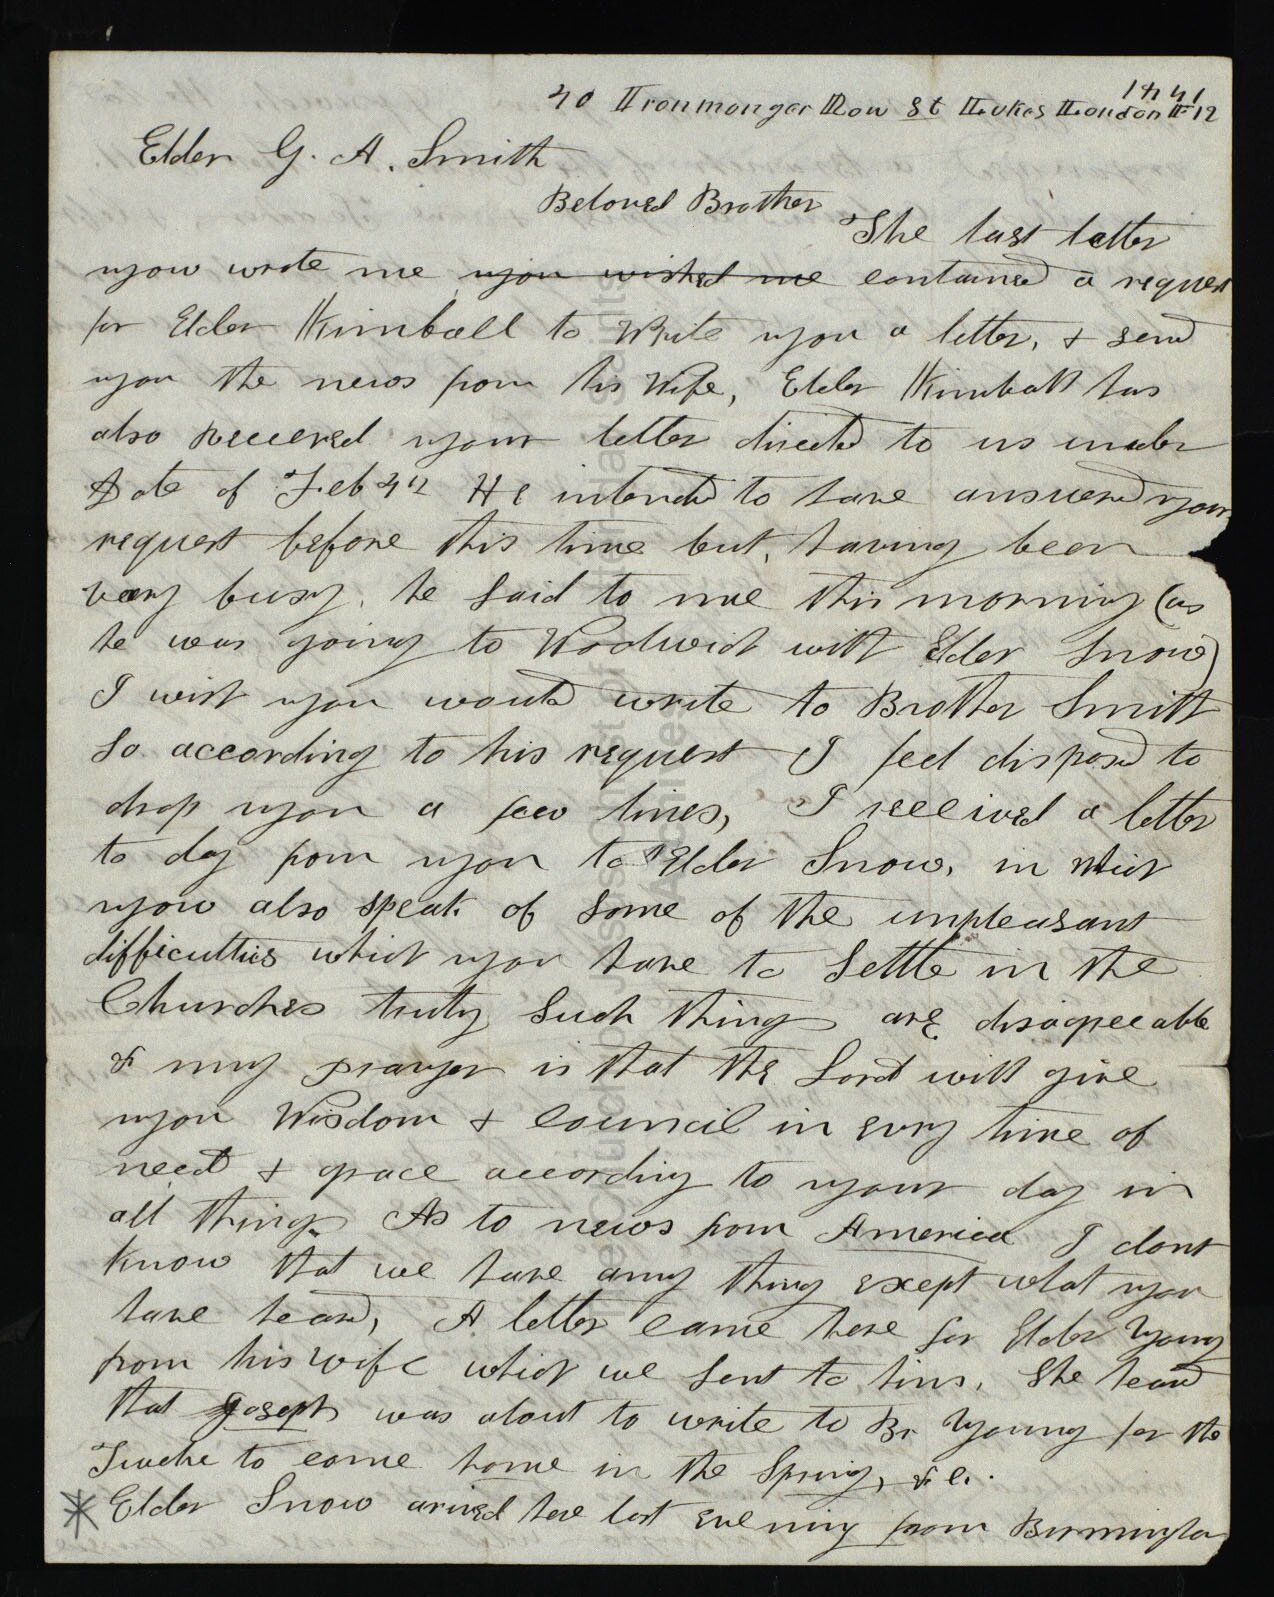 1841
40 Ironmonger Row St Lukes London F 12
Elder G. A. Smith
Beloved Brother
The last letter
you wrote me you wished me contained a request
for Elder Kimball to Write you a letter, & send
you the news from his Wife, Elder Kimball has
also received your letter directed to us under
date of Feb 4th He intended to have answered your
request before this time but, having been
very busy, he said to me this morning (as
he was going to Woolwich with Elder Snow)
I wish you would write to Brother Smith
So according to his request I feel disposed to
drop you a few lines, I received a letter
to day from you to Elder Snow, in which
you also speak of some of the unpleasant
difficulties which you have to settle in the
Churches truly such things are disagreeable
& my prayer is that the Lord will give
you Wisdom & council in evry time of
need & grace according to your day in
all things As to news from America I dont
know that we have any thing except what you
have heard, A letter came here for Elder Young
from his wife which we sent to him, She heard
that Joseph was about to write to Br Young for the
Twelve to come home in the Spring, &c.
Elder Snow arived here last evening from Birmingham